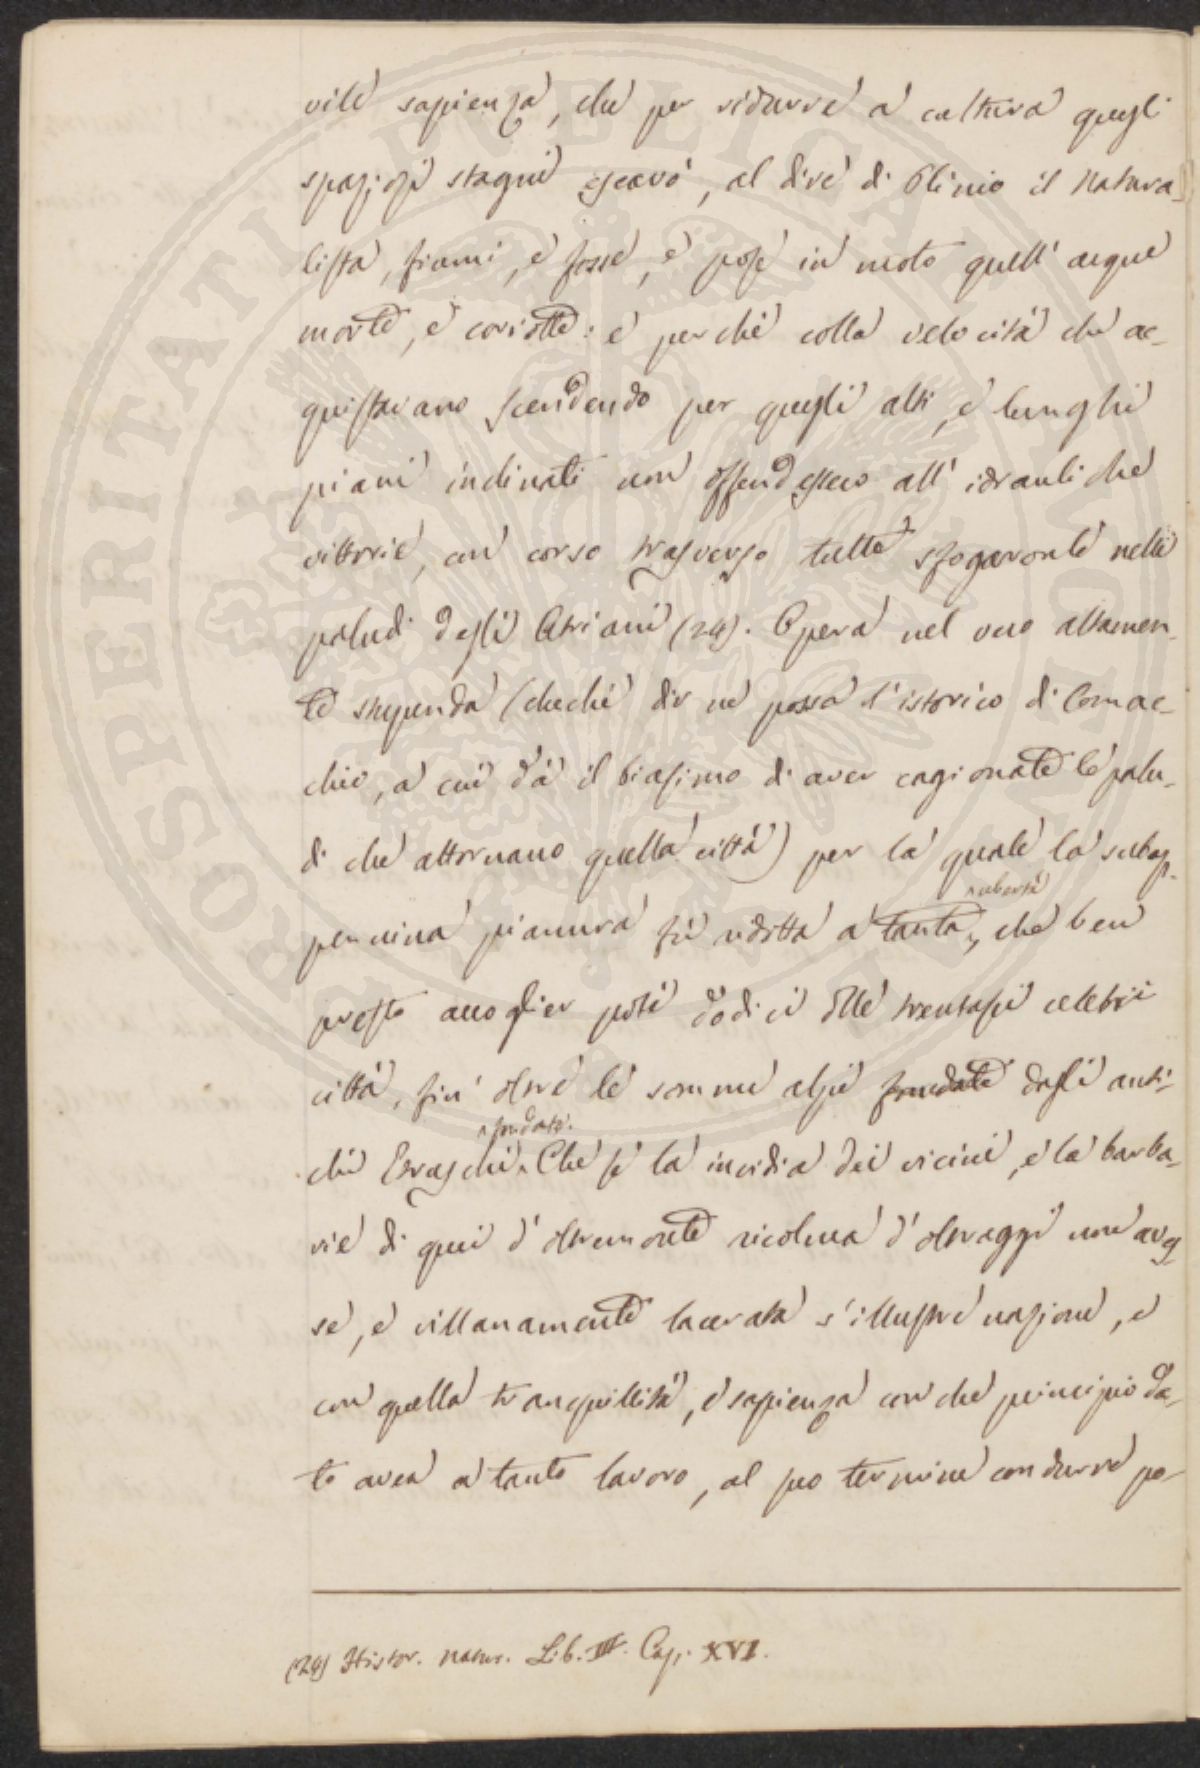 vile sapienza, che per ridurre a cultura quegli
spaziosi stagni escavò, al dire di Plinio il Natura-
lista, fiumi, e fosse, e pose in moto quell' acque
morte, e corrotte: e perchè colla velocità che ac-
quistavano scendendo per quegli alti, e lunghi
piani inclinati non offendessero all' idrauliche
vittorie, con corso trasverso tutte sfogaronle nelle
paludi degli Atriani (24). Opera nel vero altamen-
te stupenda (checchè dir ne possa l' istorico di Comac-
chio, a cui dà il biasimo di aver cagionate le palu-
di che attornano quella città) per la quale la subap-
ubertà
pennina pianura fù ridotta a tanta, che ben
presto accoglier potè dodici delle trentasei celebri
città, fin' oltre le somme alpi fondate dagli anti-
fondate.
chi Etruschi. Che se la invidia dei vicini, e la barba-
rie di quei d' oltremonte ricolma d' oltraggi non aves-
se, e villanamente lacerata s' illustre nazione, e
con quella tranquillità, e sapienza con che principio da-
to avea a tanto lavoro, al suo termine condurre po-
(24) Histor. natur. Lib. III. Cap. XVI.
PROSPERITATI PUBLICAE